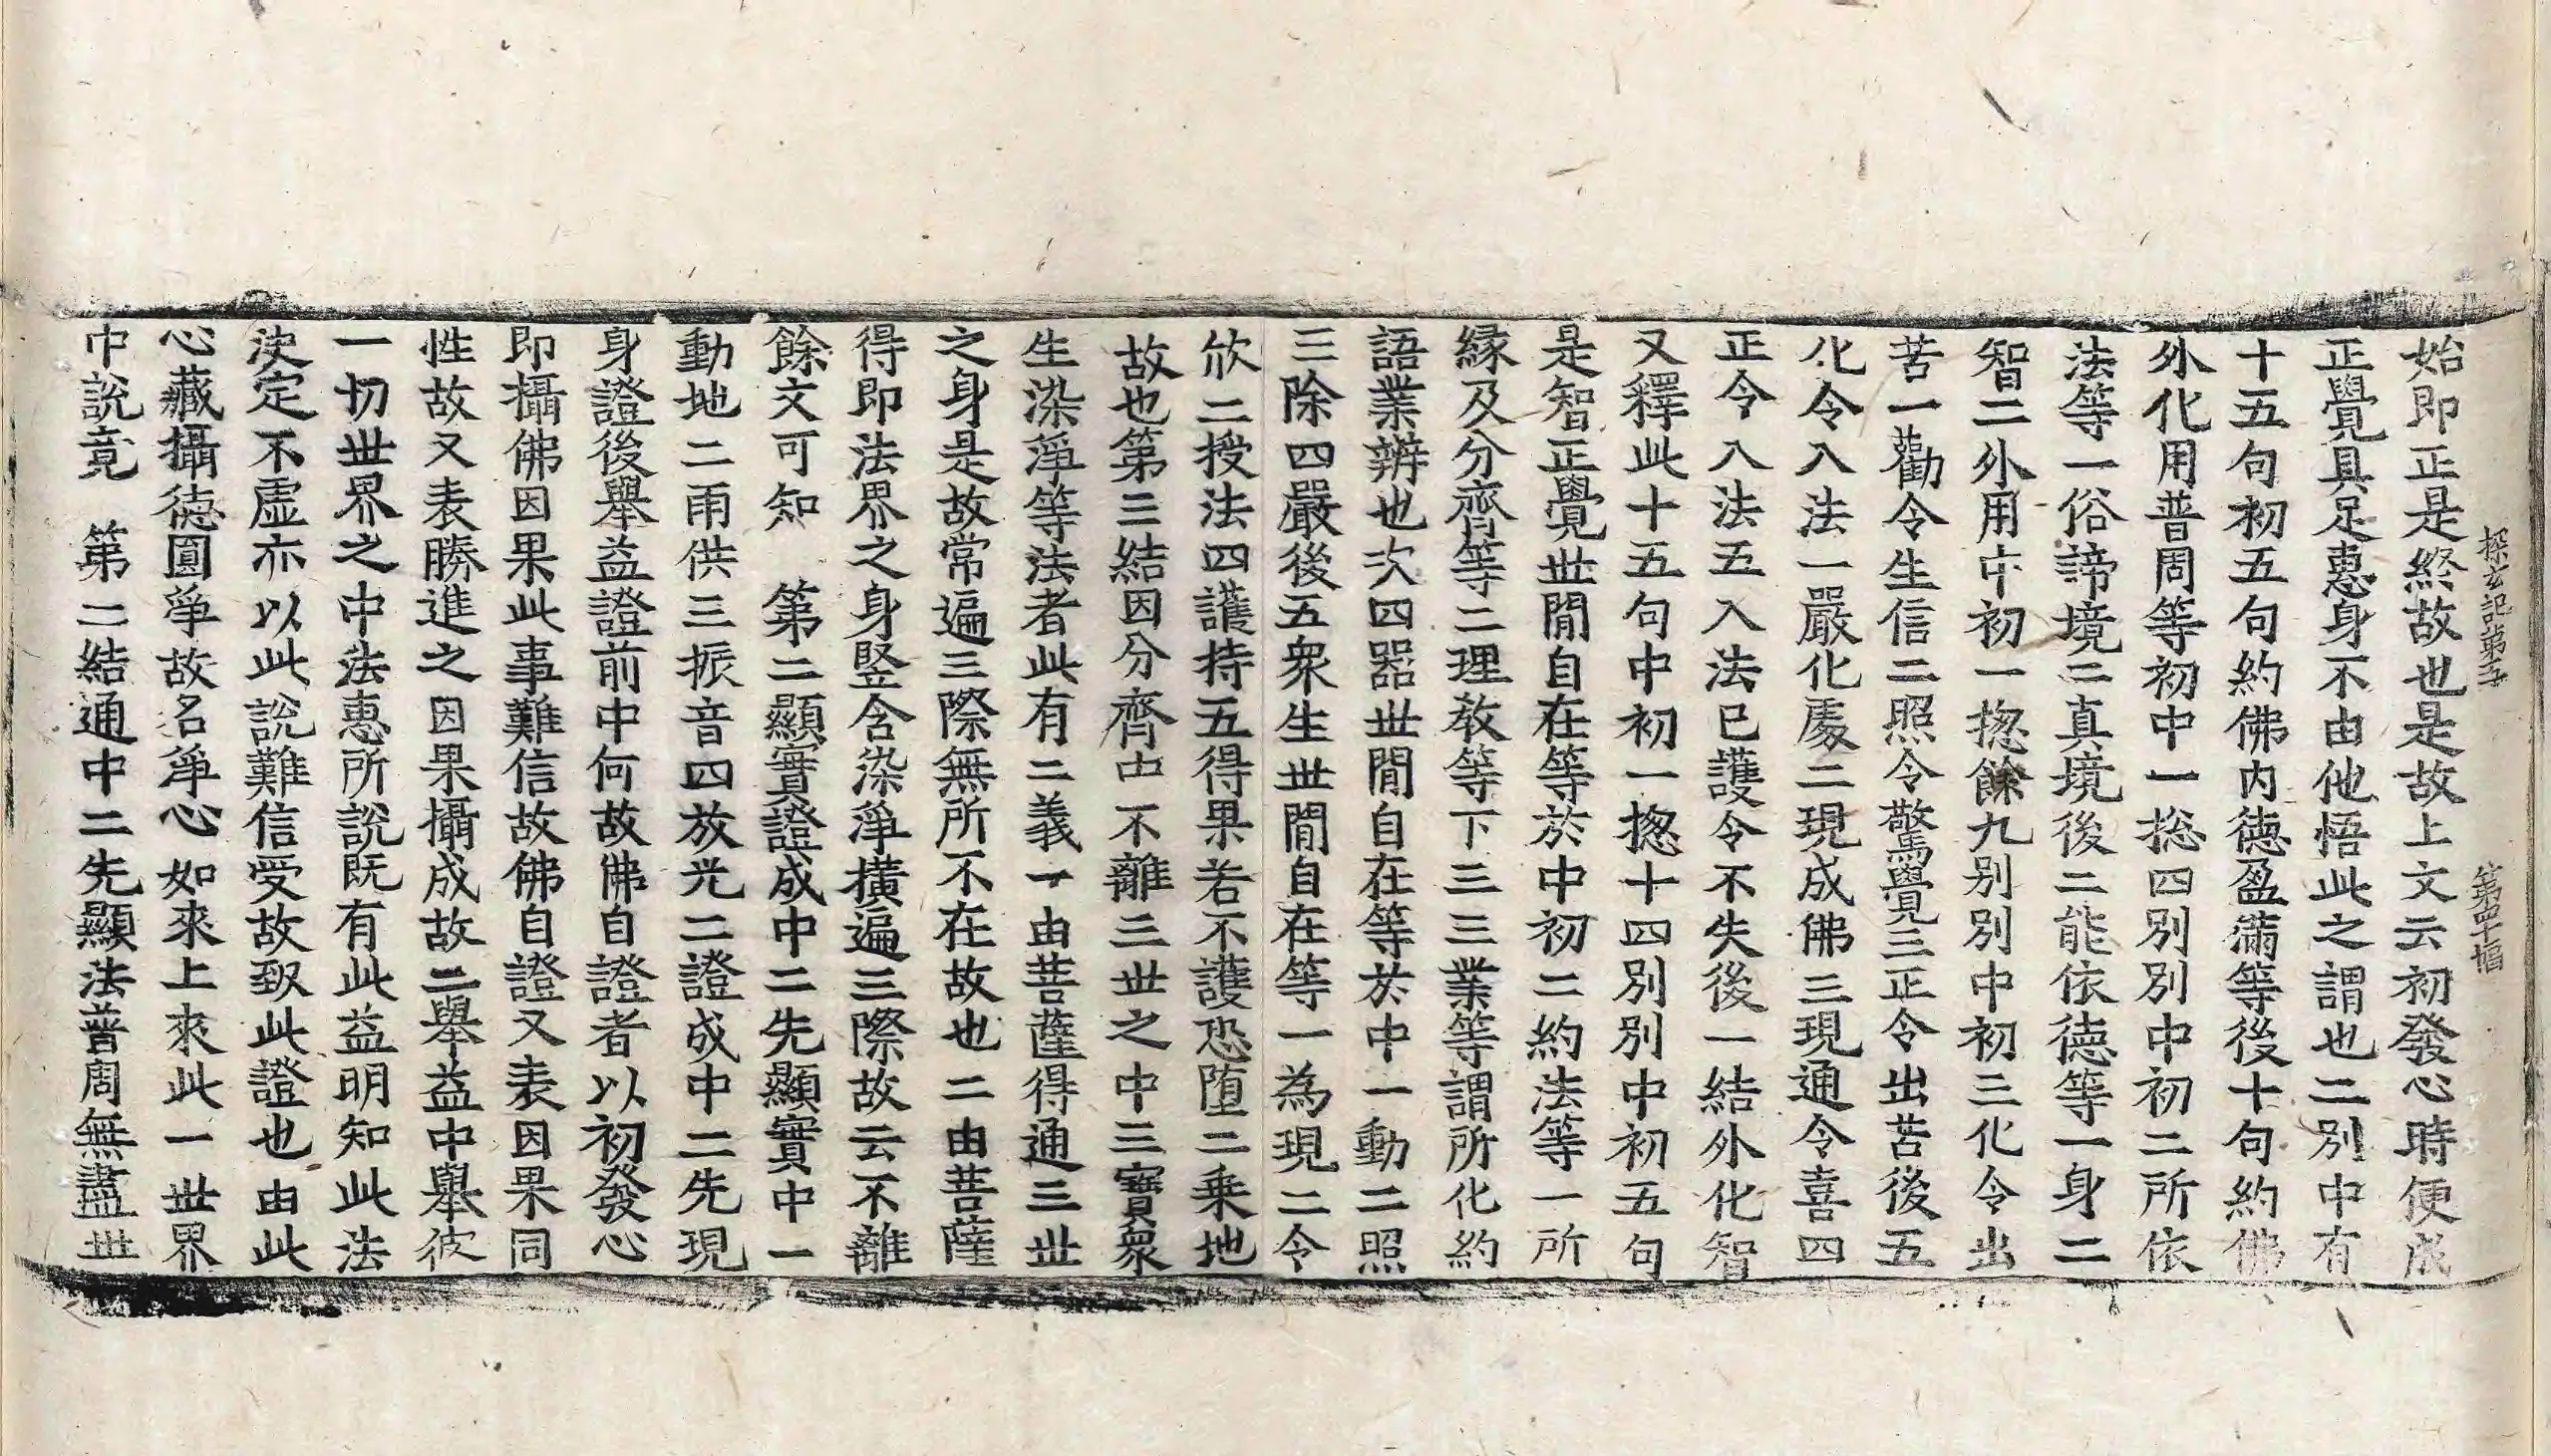 探玄記第五　第四十幅
始即正是終故也是故上文云初發心時便成
正覺具足惠身不由他悟此之謂也二別中有
十五句初五句約佛內德盈滿等後十句約佛
外化用普周等初中一揔四別別中初二所依
法等一俗諦境二真境後二能依德等一身二
智二外用中初一揔餘九別別中初三化令出
苦一勸令生信二照令驚覺三正令出苦後五
化令入法一嚴化處二現成佛三現通令喜四
正令入法五入法已護令不失後一結外化智
又釋此十五句中初一揔十四別別中初五句
是智正覺世間自在等於中初二約法等一所
緣及分齊等二理教等下三三業等謂所化約
語業辨也次四器世間自在等於中一動二照
三除四嚴後五衆生世間自在等一為現二令
欣二授法四護持五得果若不護恐墮二乘地
故也第三結因分齊中不離三世之中三寶衆
生染淨等法者此有二義一由菩薩得通三世
之身是故常遍三際無所不在故也二由菩薩
得即法界之身竪含染淨橫遍三際故云不離
餘文可知　第二顯實證成中二先顯實中一
動地二雨供三振音四放光二證成中二先現
身證後舉益證前中何故佛自證者以初發心
即攝佛因果此事難信故佛自證又表因果同
性故又表勝進之因果攝成故二舉益中舉彼
一切世界之中法惠所說既有此益明知此法
決定不虛亦以此說難信受故致此證也由此
心藏攝德圓淨故名淨心如來上來此一世界
中說竟　第二結通中二先顯法普周無盡世